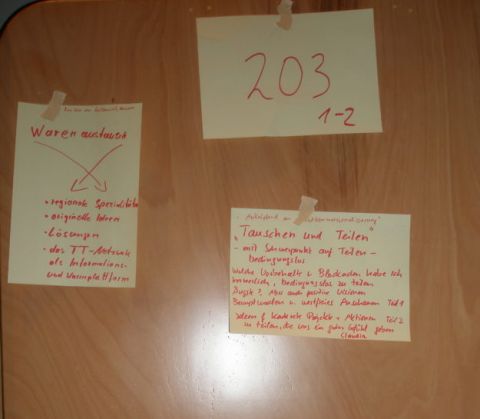 203
1-2
Warenaustausch
• regionale Spezialitäten
• originelle Ideen
• Lösungen
• das TT-Netzwerk
als Informations-
und Warenplattform
"Tauschen und Teilen"
- mit Schwerpunkt auf Teilen -
bedingungslos
Welche Vorbehalte u. Blockaden habe ich
innerlich, bedingungslos zu teilen
Ängste?, Aber auch positive Visionen
Bewusstwerden u. wertfreies Anschauen Teil 1
Ideen f. konkrete Projekte + Aktionen Teil 2
zu teilen, die uns ein gutes Gefühl geben
Claudia